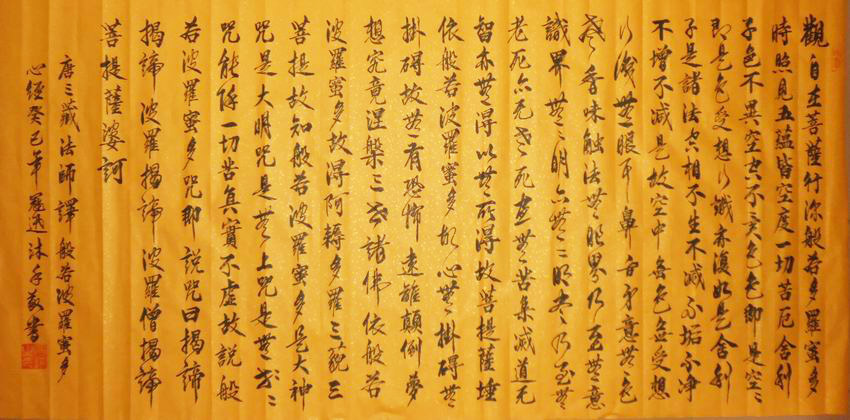 觀自在菩薩行深般若多羅蜜多
時照見五蘊皆空度一切苦厄舍利
子色不異空空不異色色即是空空
即是色受想行識亦復如是舍利
子是諸法空相不生不滅不垢不淨
不增不減是故空中無色無受想
行識無眼耳鼻舌身意無色
聲香味觸法無眼界乃至無意
識界無無明亦無無明盡乃至無
老死亦無老死盡無苦集滅道無
智亦無得以無所得故菩提薩埵
依般若波羅蜜多故心無掛礙無
掛礙故無有恐怖遠離顛倒夢
想究竟涅槃三世諸佛依般若
波羅蜜多故得阿耨多羅三藐三
菩提故知般若波羅蜜多是大神
咒是大明咒是無上咒是無等等
咒能除一切苦真實不虛故說般
若波羅蜜多咒即說咒曰揭諦
揭諦波羅揭諦波羅僧揭諦
菩提薩婆訶
唐三藏法師譯般若波羅蜜多
心經癸巳年沐手敬書